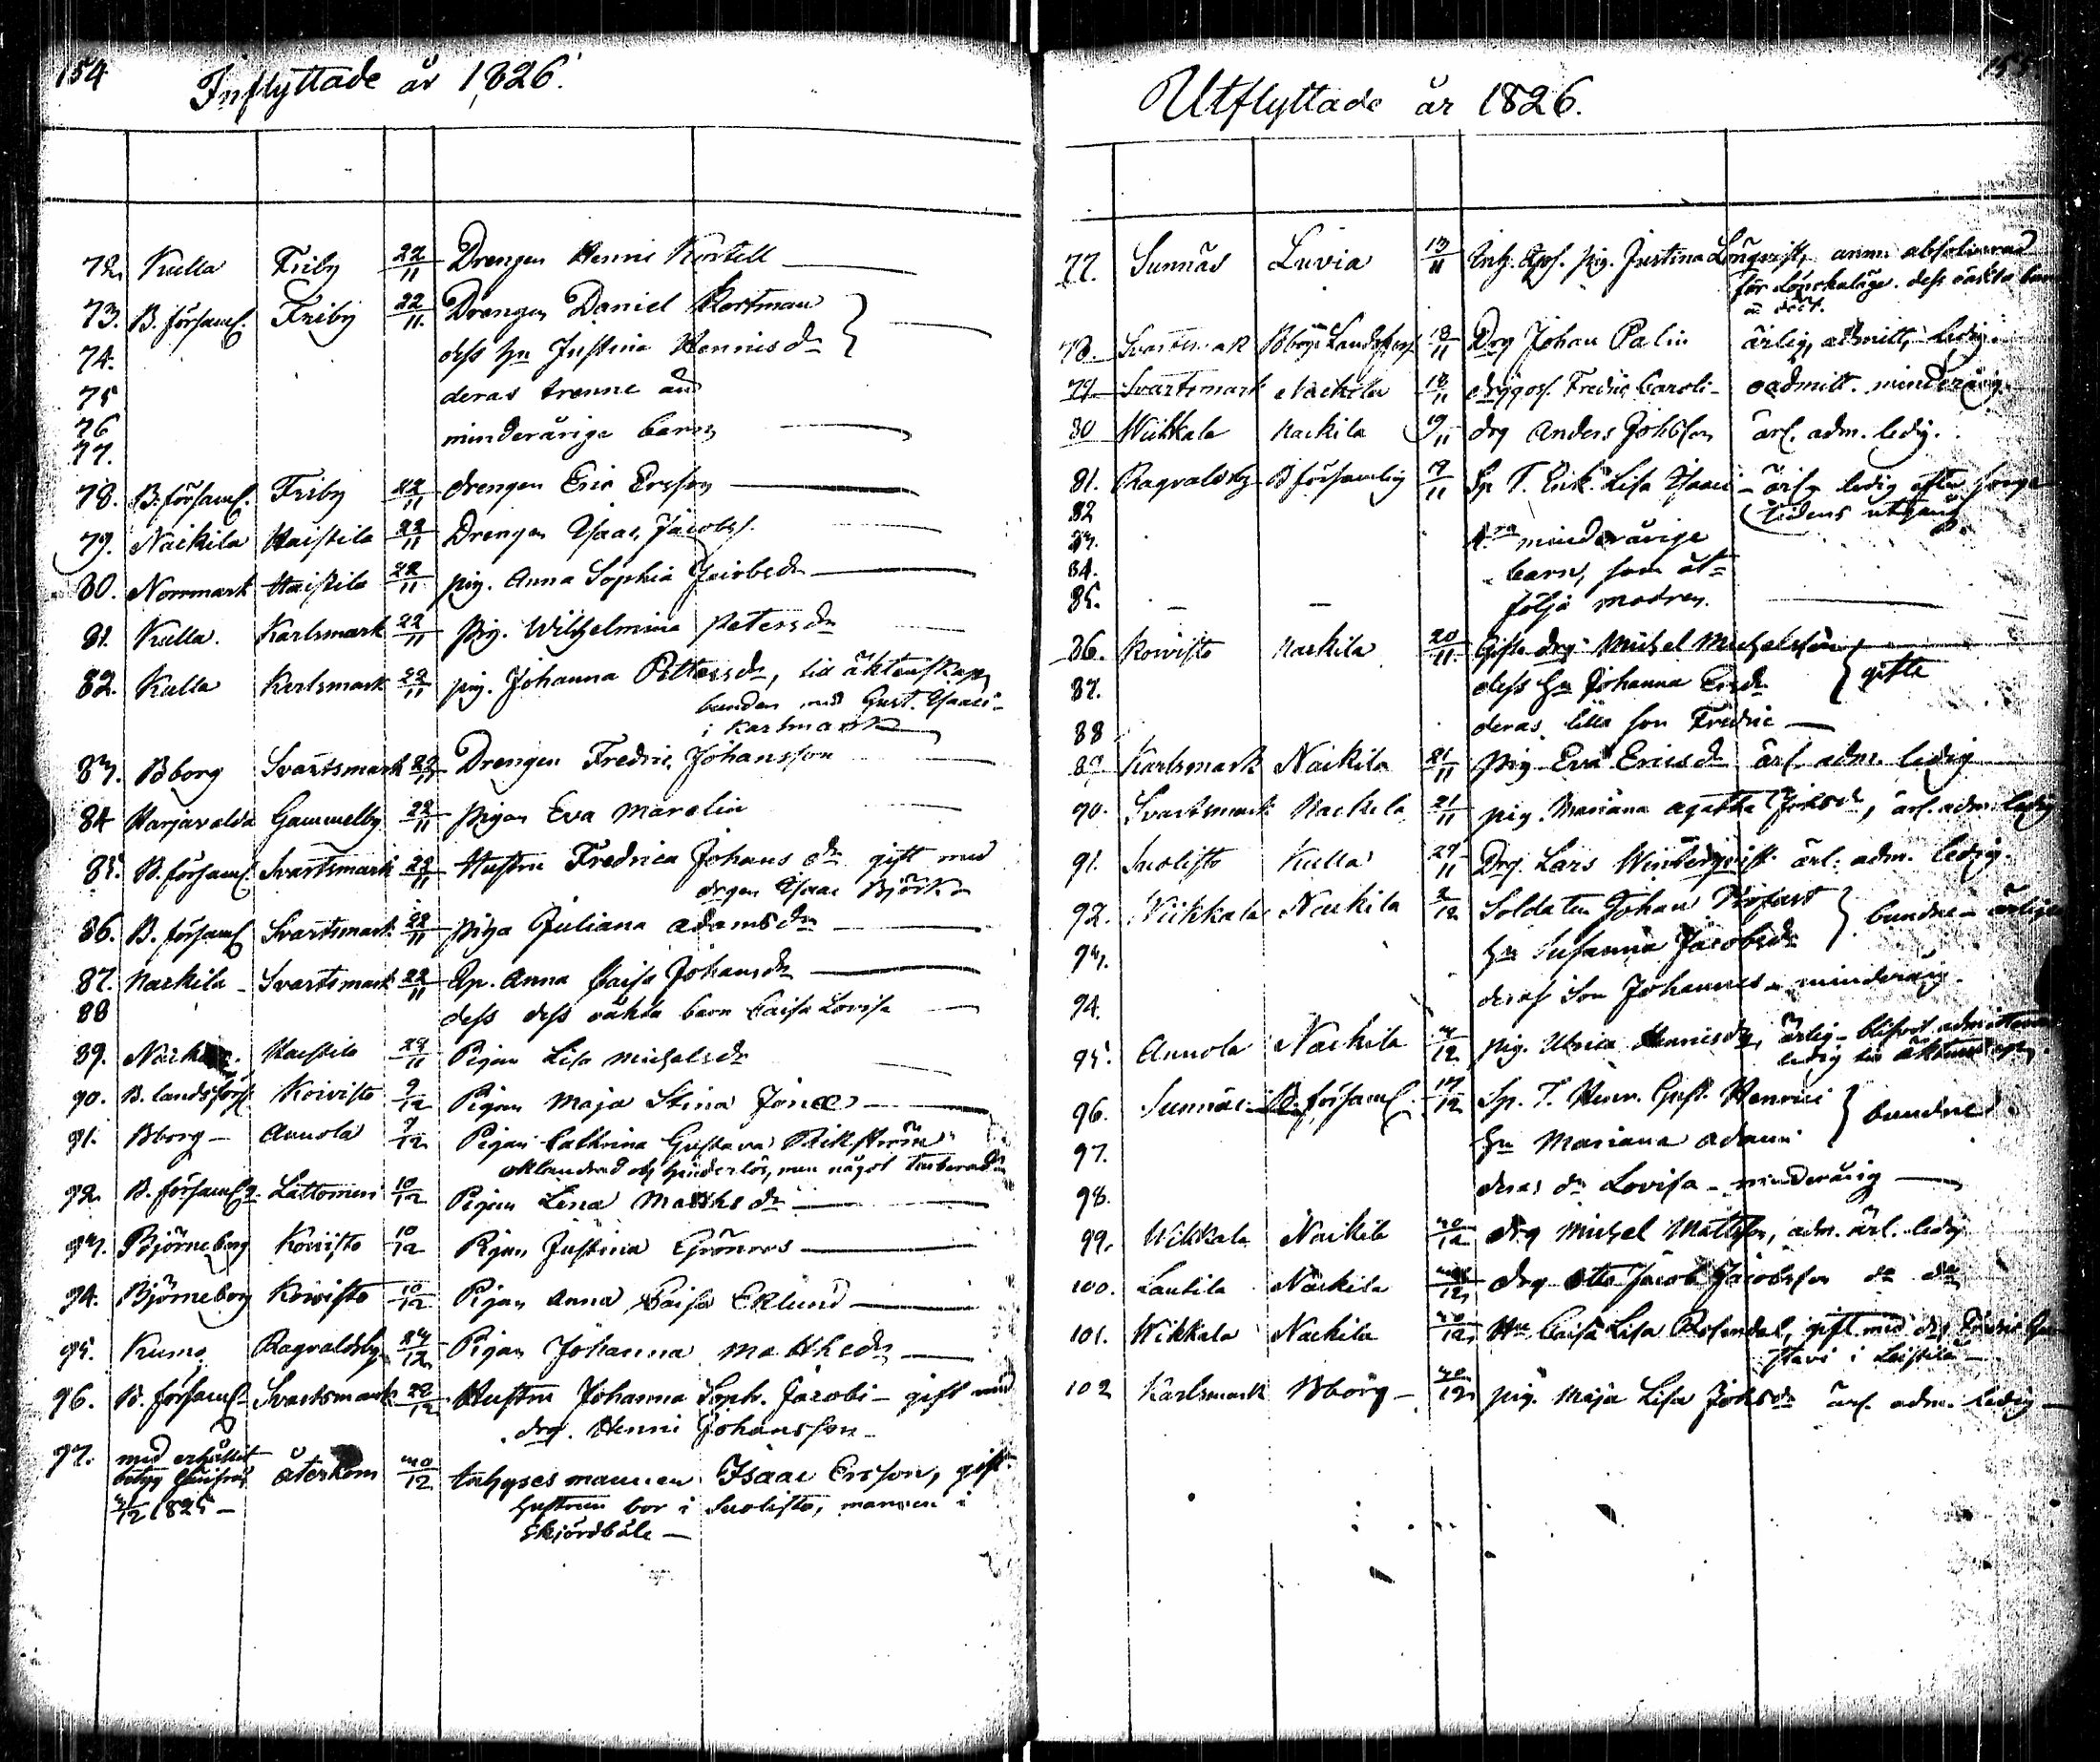 154
Inflyttade år 1826.
72 Kulla Friby 22/11 Drengen Henric Kortell
73. B. församl. Friby 22/11. Drengen Daniel Kortman
74. dess hu Justina Henricsdr
75 deras trenne
76 minderåriga barn
77.
78. B. församl. Friby 22/11 drengen Eric Ersson
79. Nackila Haistila 22/11 Drengen Isaac Jacobss.
80. Norrmark Haistila 22/11 pig. Anna Sophia Jacobsdr
81. Kulla. Karlsmark 22/11 pig. Wilhelmina Petersdr
82. Kulla Karlsmark 22/11 pig. Johanna Pettersdr, till äktenskap
bunden med Gust. Isaaci
i Karlsmark
83. Bborg Svartsmark 22/11 Drengen Fredric Johansson
84 Harjavalda Gammelby 22/11 pigan Eva Marolin
85. B. församl. Svartsmark 22/11 Hustru Fredrica Johansdr gift med
drgen Isaac Björk
86. B. församl Svartsmark 22/11 piga Juliana Adamsdr
87. Nackila Svartsmark 22/11 Qp. Anna Caisa Johansdr
88 dess dess oäkta barn Caisa Lovisa
89. Haistila 22/11 Pigan Lisa Michelsdr
90. B. landsförs. Koivisto 9/12 Pigan Maja Stina
91. Bborg Annola 9/12 Pigan Cathrina Gustava Rikström
oklandrad och hinderlös, men något
92. B. församlg. Lattomeri 10/12 Pigan Lena Mathsdr
93. Björneborg Koivisto 10/12 Pigan Justina Grönroos
94. Björneborg Koivisto 10/12 Pigan Anna Caisa Eklund
95. Kumo Ragvaldsby 23/12 Pigan Johanna Mathsdr
96. B. församl. Svartsmark 22/12 Hustru Johanna Soph. Jacobi gift med
drg. Henric Johansson
97. med erhållit återkom 30/12 Inhysesmannen Isaac Ersson, gift
betyg härifrån hustrun bor i Suolisto, mannen i
/12 1825 Skjördbäle
155
Utflyttade år 1826.
77. Sunnäs Luvia 13/11 Inh. pig. Justina Lönqvist, absolverad
för lönskaläge. dess oäkta barn
är dödt.
78. Svartsmark Bborgs Landsförs 18/11 Drg Johan Palin ärlig, admitt, ledig.
79. Svartsmark Nackila 18/11 drggoss. Fredric Caroli oadmitt. minderårig
80 Wikkala Nackila 19/11 drg Anders Johsson ärl. adm. ledig.
81. Ragvaldsby B församling 19/11 Sp. T. Enk. Lisa Isaaci ärlig ledig efter sorge
82 tidens utgång
83. minderårige
84. barn, som åt
85. följa modren.
86. Koivisto Nackila 20/11. Gifta drg Michel Michelsson
87. dess hu Johanna Ersdr gifta
88 deras lilla son Fredric
89 Karlsmark Nackila 21/11 pig Eva Ericsdr ärl. adm. ledig
90. Svartsmark Nackila 21/11 pig. Mariana Agatha Johsdr, ärl. adm. ledig
91. Suolisto Kulla 27/11 Drg. Lars Winterqvist ärl. adm. ledig.
92. Wikkala Nackila /12 Soldaten Johan bundne ärliga
93. hu Susanna Jacobsdr
94. deras son Johannes minderårig.
95. Annola Nackila /12 pig. Ulrica Henricsdr, ärlig
ledig till äktenskap.
96. Sunnäs B. församl. 17/12 Sp. T. Henr. Gust. Henrici bundne
97. hu Mariana Adami
98. deras dr Lovisa minderårig
99. Wikkala Nackila 30/12 drg Michel Mattsson, adm. ärl. ledig
100. Lautila Nackila /12 drg Otto Jacob Jacobsson do do
101. Wikkala Nackila 30/12 Hu Caisa Lisa Rosendal, gift med drg Fredric Gu
stavi i Leistila
102 Karlsmark Bborg 30/12 pig. Maja Lisa Johsdr ärl. adm. ledig